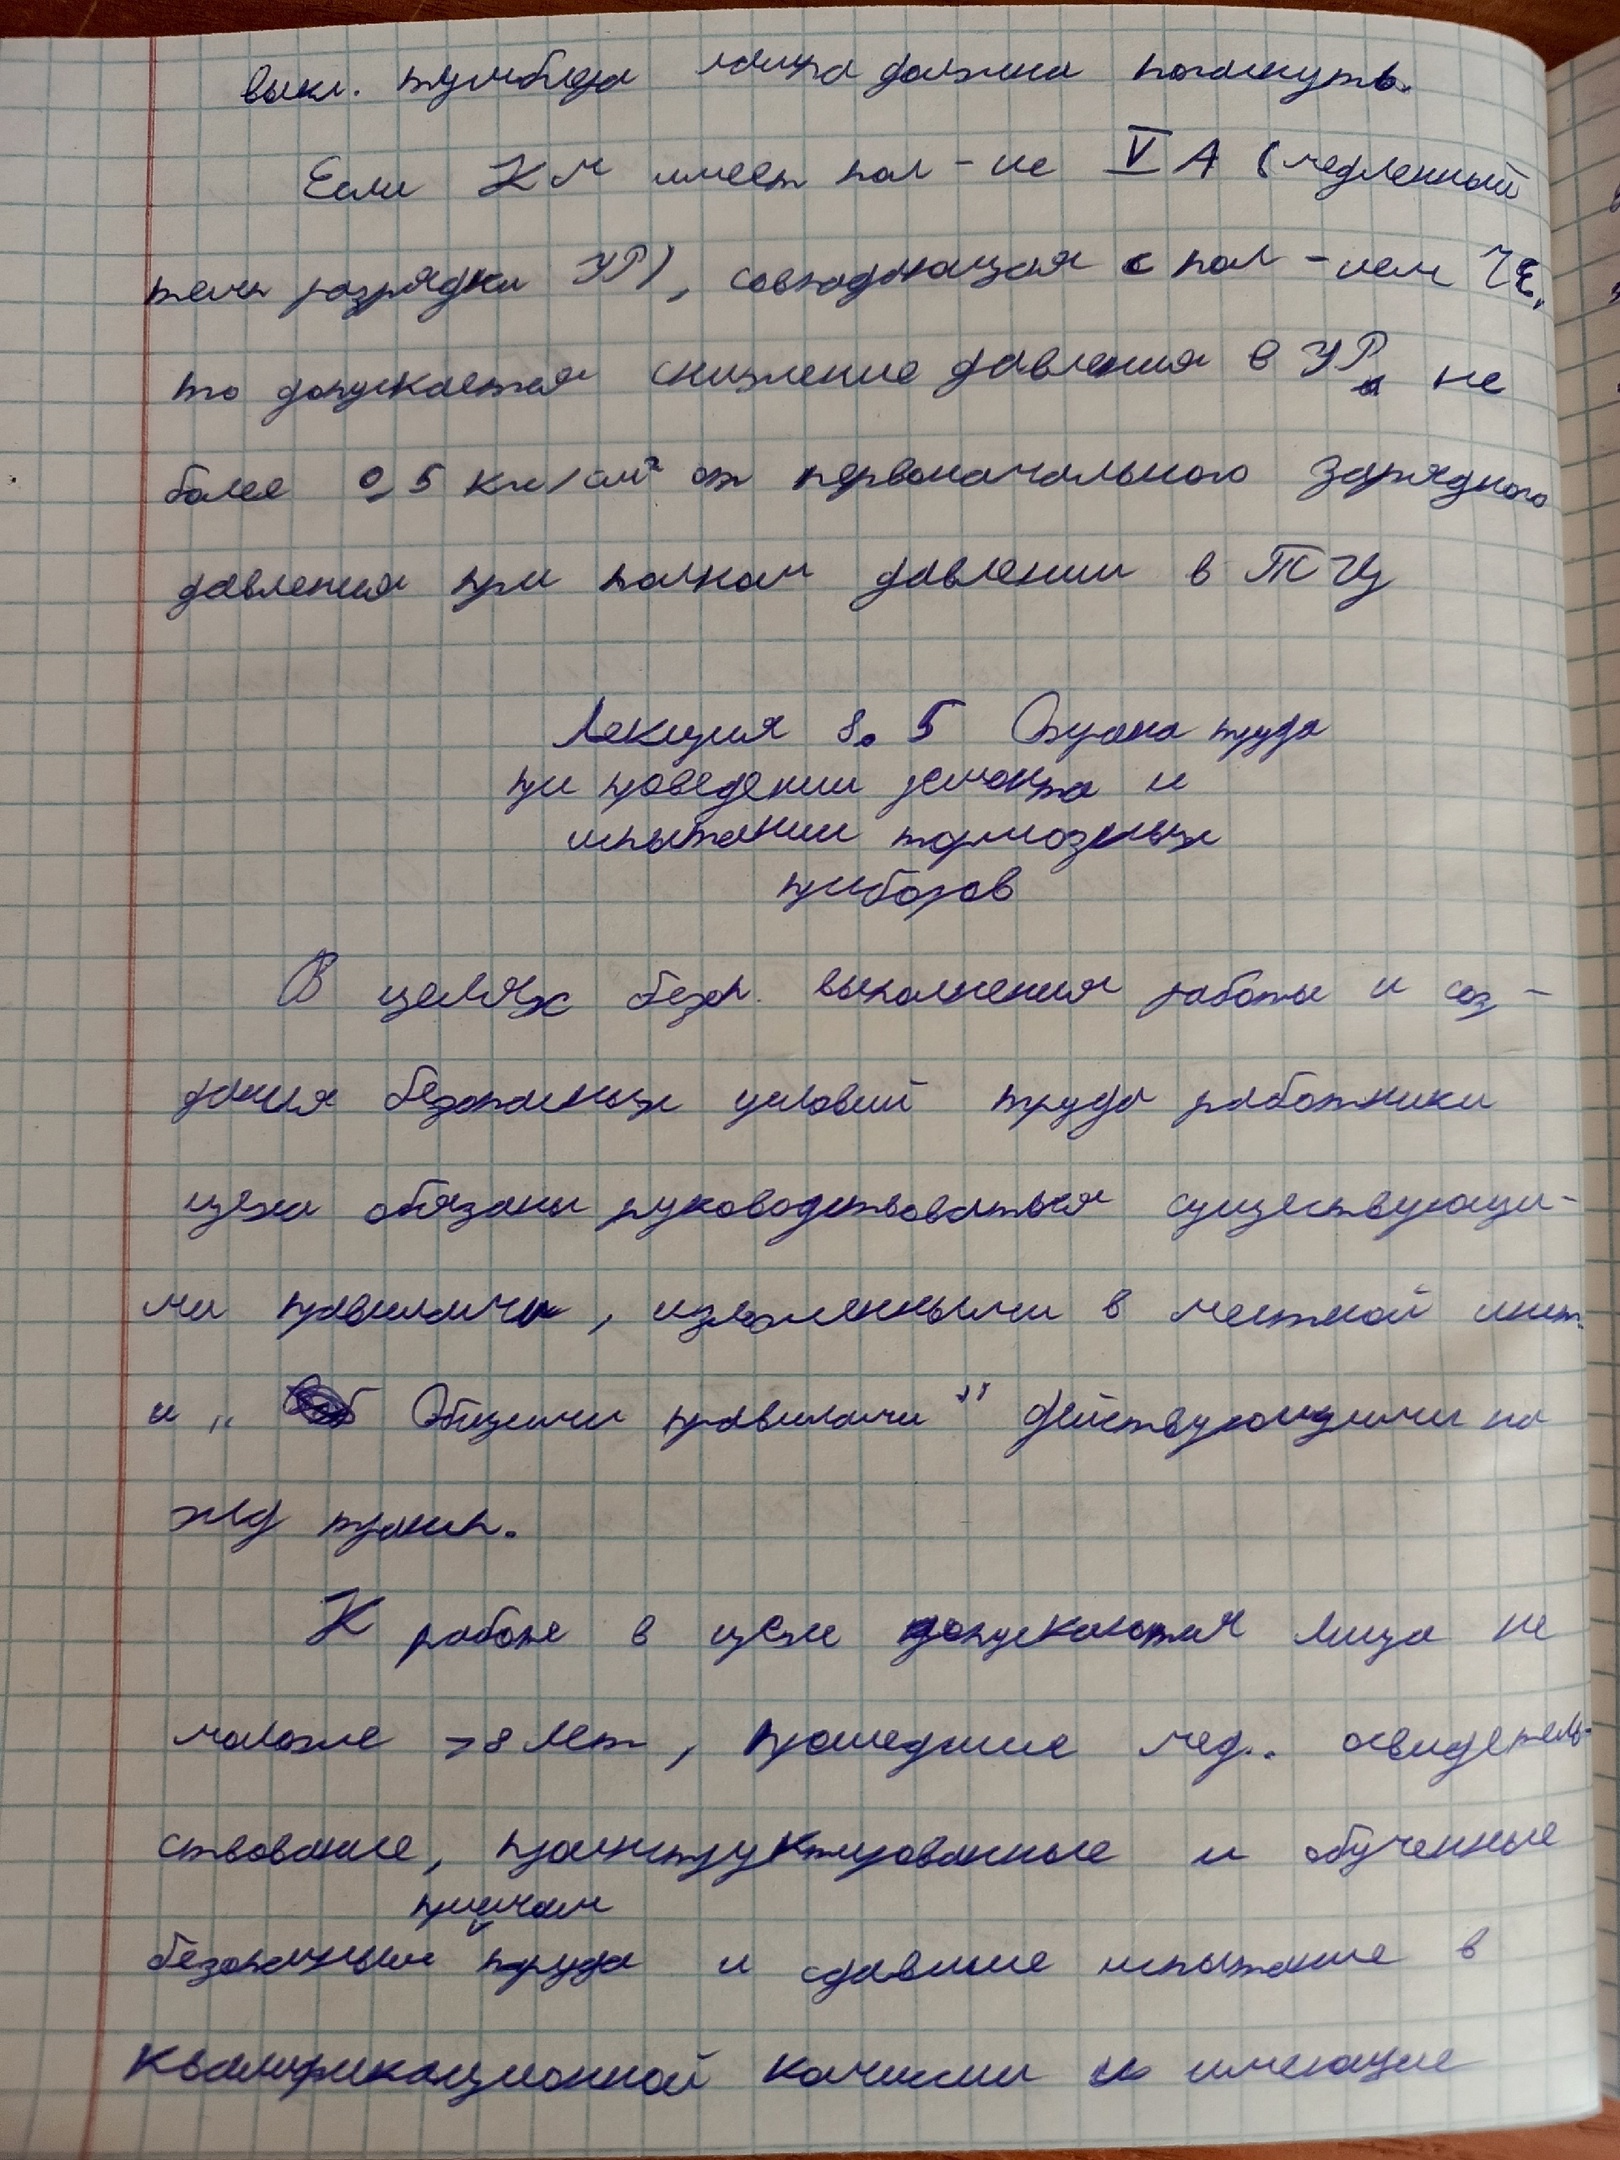 выкл. тумблера лампа должна погаснуть.
Если КМ имеет пол-ие V А (медленный
темп разрядки УР), совпадающая с пол-ием ЧЕ,
то допускается снижение давления в УР не
более 0,5 кг/см² от первоначального зарядного
давления при полном давлении в ТЦ
Лекция 8.5 Охрана труда
при проведении ремонта и
испытании тормозных
приборов
В целях безоп. выполнения работы и соз-
дания безопасных условий труда работники
цеха обязаны руководствоваться существующи-
ми правилами, изложенными в местной инст.
и „Общими правилами" действующими на
жд трансп.
К работе в цехе допускаются лица не
моложе 18 лет, прошедшие мед. освидетель-
ствование, проинструктированные и обученные
приёмам
безопасным труда и сдавшие испытание в
квалификационной комиссии и имеющие